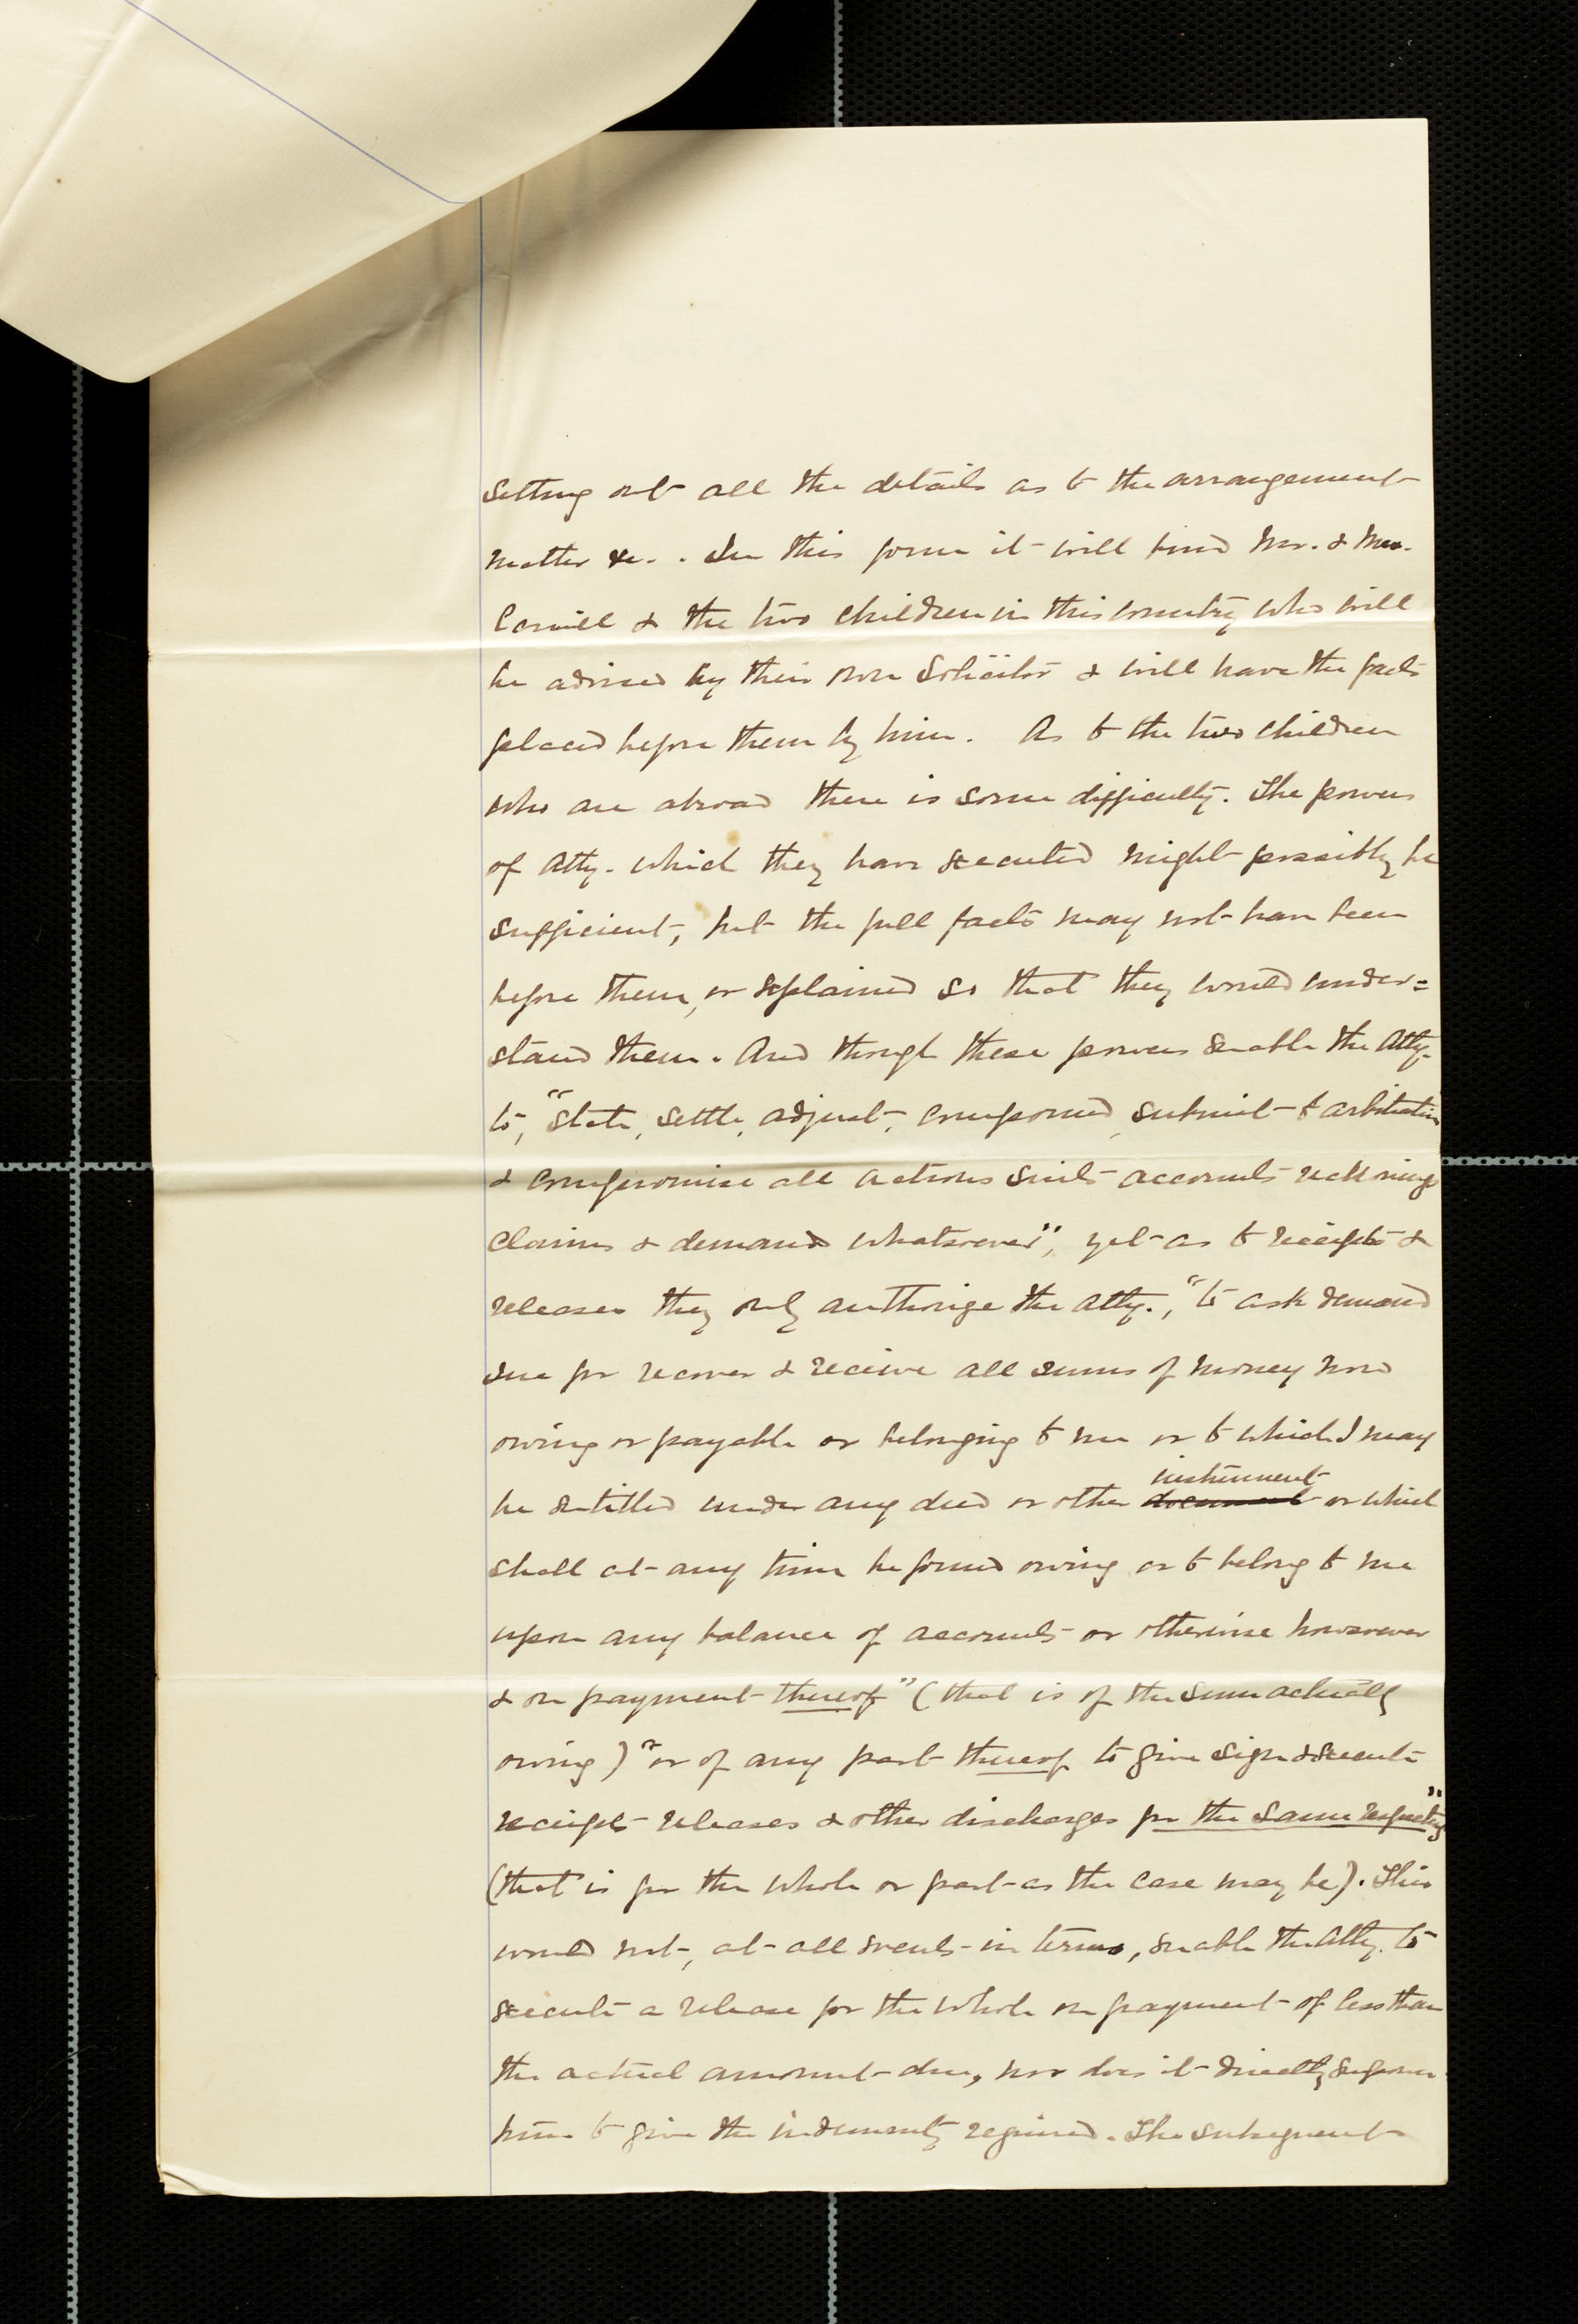 setting out all the details as to the arrangement
matter &c. . In this form it will bind Mr. & Mrs.
& the two children in this country who will
be advised by their own Solicitor & will have the facts
placed before them by him. As to the two children
who are abroad there is some difficulty. The powers
of Atty. which they have executed might possibly be
sufficient, but the full facts may not have been
before them, or explained so that they would under=
stand them. And though these powers enable the Atty.
to, "state, settle, adjust, compound, submit to arbitration
& compromise all actions suits accounts reckonings
claims & demands whatsoever", yet as to receipts &
releases they only authorize the Atty., "to ask demand
sue for recover & receive all sums of money now
owing or payable or belonging to me or to which I may
be entitled under any deed or other document instrument or which
shall at any time be found owing or to belong to me
upon any balance of accounts or otherwise howsoever
& on payment thereof" (that is of the sum actually
owing) "or of any part thereof to give sign & execute
receipts releases & other discharges for the same respectively"
(that is for the whole or part as the case may be). This
would not, at all events in terms, enable the Atty. to
execute a release for the whole on payment of less than
the actual amount due, nor does it directly empower
him to give the indemnity required. The subsequent